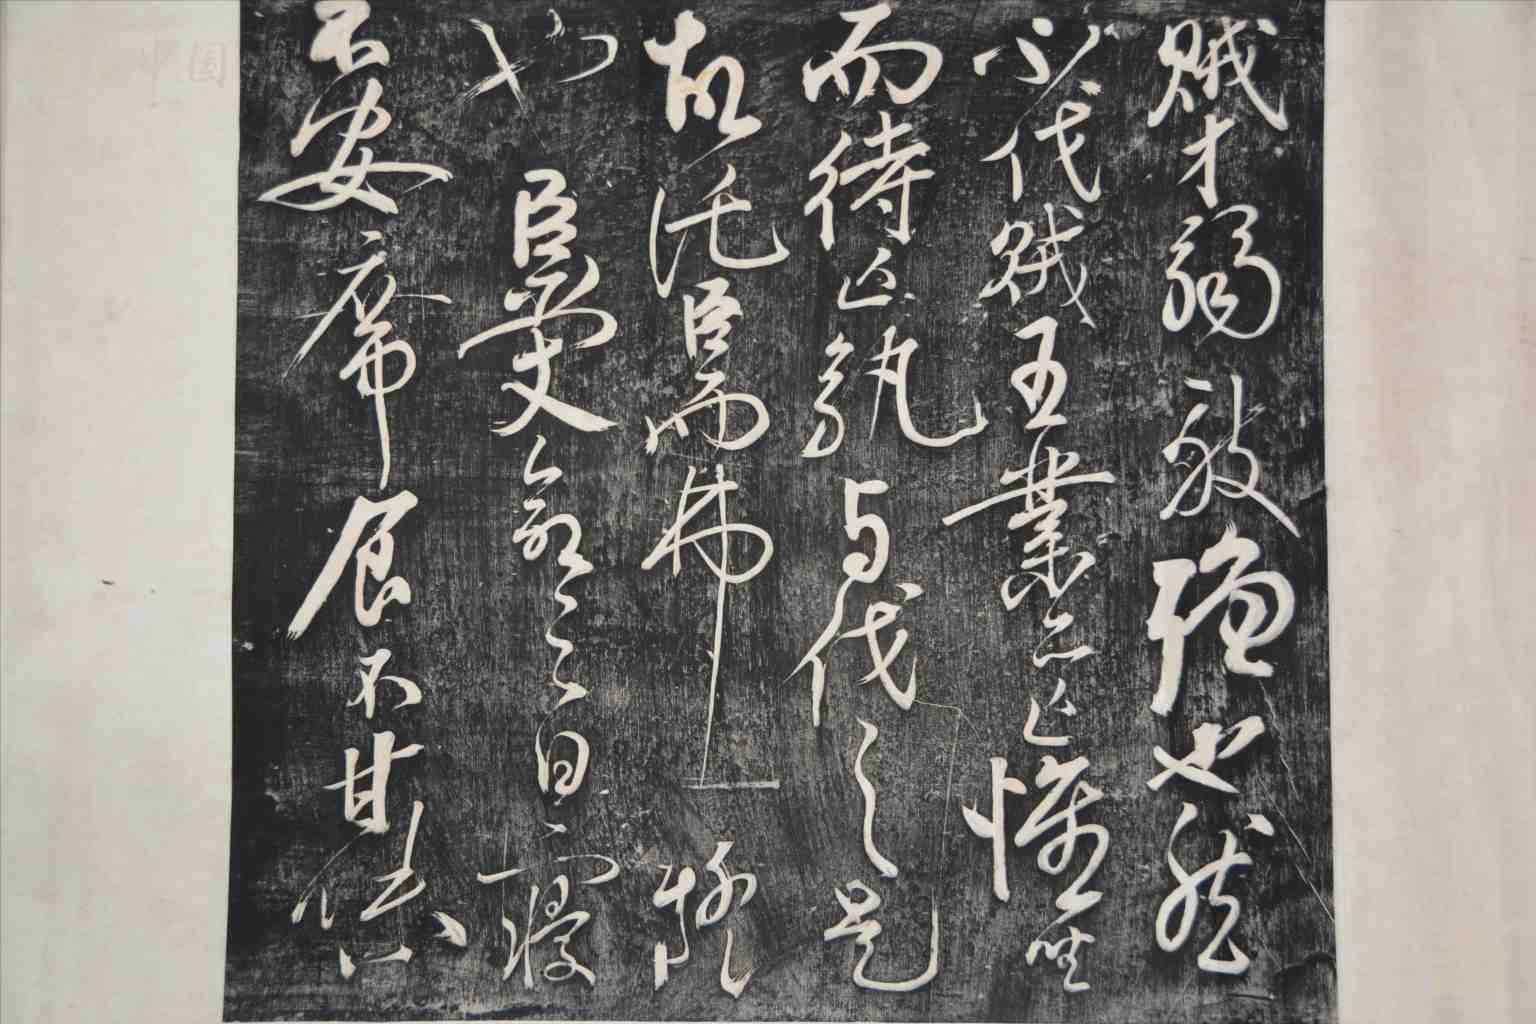 賊才弱敵強也然
不伐賊王業亦亡惟坐
而待亡孰与伐之是
故託臣而弗疑
也臣受命之日寢
不安席食不甘味
中国